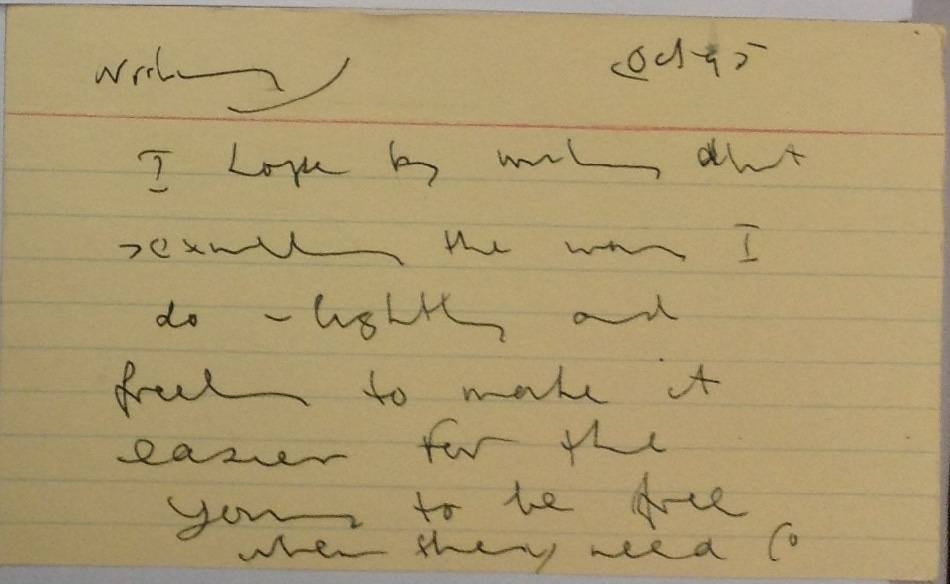 Writing Oct 95
I hope by writing about
sexuality the way I
do - lightly and
freely to make it
easier for the
young to be free
when they need to